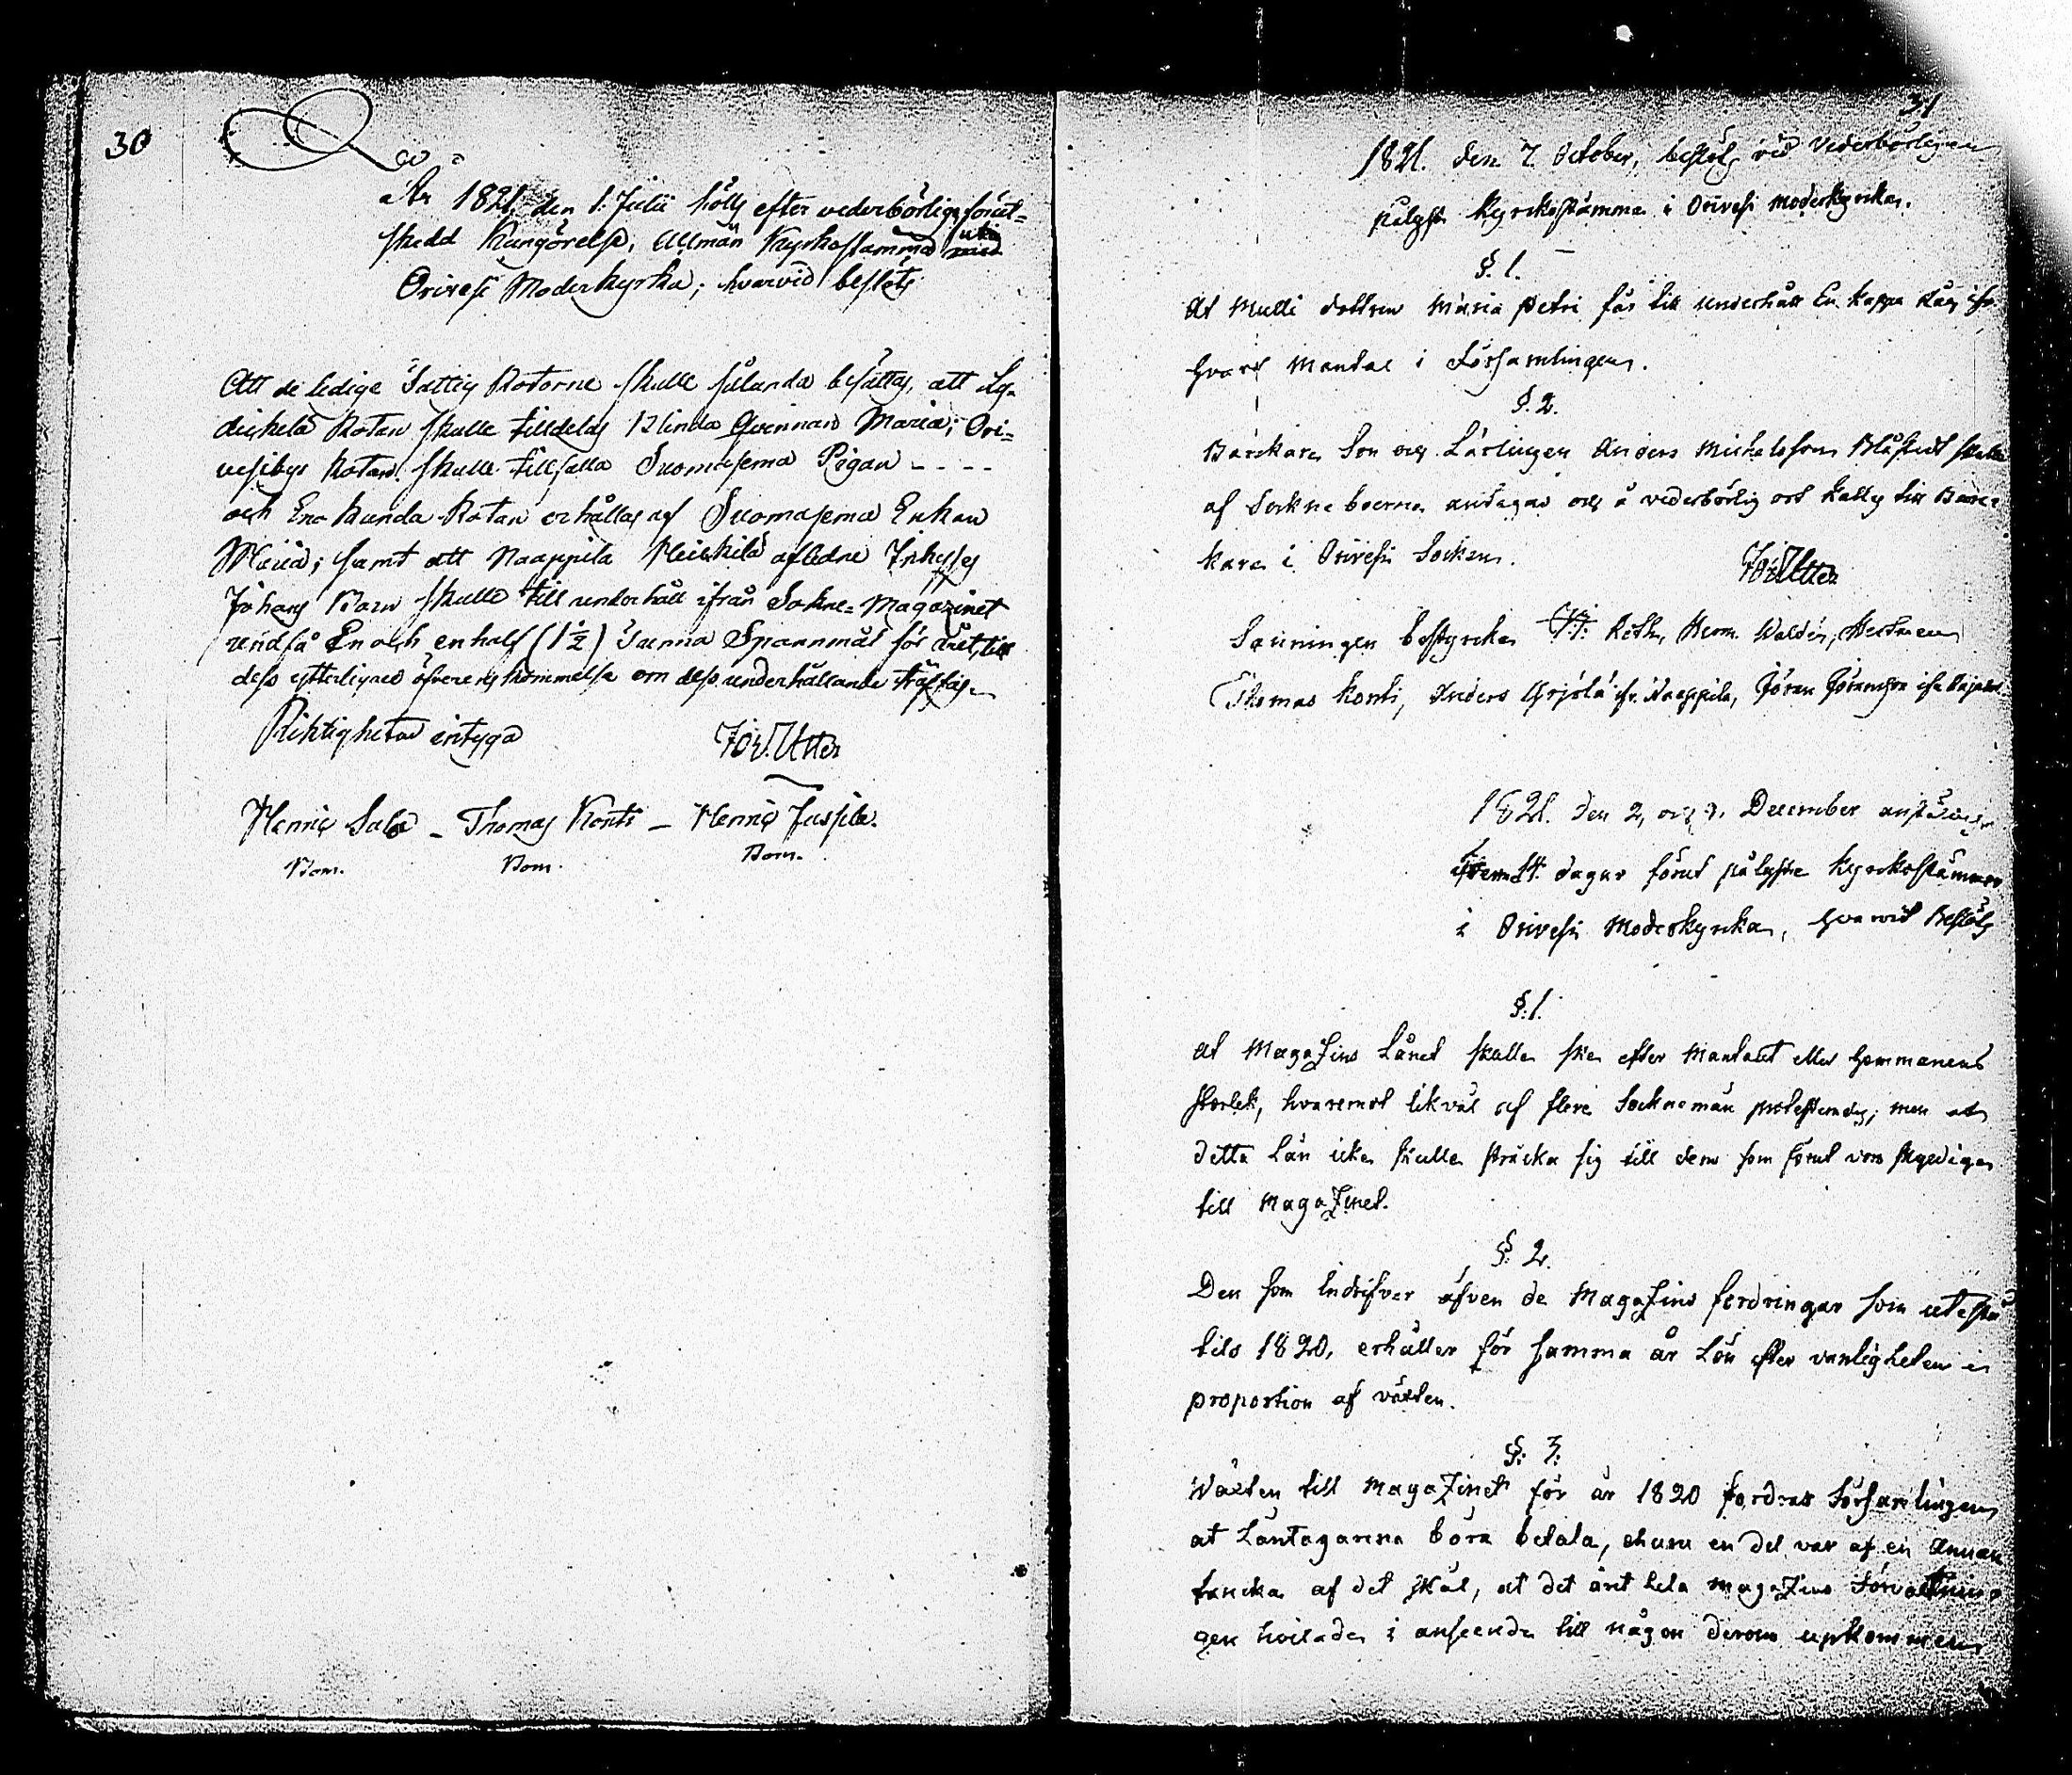 30
År 1821. den 1. Julii hölls efter vederbörligs förut-
skedd Kungörelse, Allmän Kyrkostämma uti
Orivesi Moderkyrka; hvarvid beslöts
Att de ledige Fattig Rotorne skulle sålunda besättas, att
Rotan skulle tilldelas Blinda Qvinnan Maria; Ori-
vesibys Rotan skulle tillfalla Suomasema Pigan - - - -
och Enokunda Rotan erhållas af Suomasema Enkan
Maria; samt att Naappila Heikkilä aflidne Inhyses
Johans Barn skulle till underhåll ifrån Sokne-Magazinet
undfå En och en half (1½) Tunna Spannmål för året, till
dess ytterligare öfverenskommelse om dess underhållande träffas.
Riktigheten intyga
Joh. Utter
Henric Salo - Thomas Konti - Henric Jussila.
Bom. Bom. Bom.
31
1821. den 7. October, beslöts vid vederbörligen
pålyst Kyrckostämma i Orivesi Moderkyrka.
§. 1.
At Mulli dottren Maria Petri får till underhåll En kappa Råg ifr.
hvart Mantal i Församlingen.
§. 2.
Barckare Son och Lärlingen Anders Michelsson Blåfield skulle
af Sockneboerna antagas och å vederbörlig ort kallas till Barc-
kare i Orivesi Socken.
Joh Utter
Sanningen bestyrcka Herm. Waldén,
Thomas Konti, Anders Yrjölä ifr. Naappila, Jöran Göransson ifr.
1821. den 2, och 9. December anstäldes
14. dagar förut pålyste Kyrckostämmor
i Orivesi Moderkyrka, hvarvid Beslöts
§. 1.
at Magazins Lånet skulle ske efter Mantalet eller Hemmanens
storlek, hvaremot likväl af flere Socknemän protesterades; men at
detta Lån icke skulle sträcka sig till dem som förut voro skyldige
till Magazinet.
§. 2.
Den som indrifver äfven de Magazins fordringar som utestå
tils 1820, erhåller för samma år Lön efter vanligheten i
proportion af växten.
§. 3.
Wäxten till Magazinet för år 1820 fordrar Församlingen
at Låntagarena böra betala, ehuru en del var af en annan
tancka af det skäl, at det året hela Magazins Förvaltnin-
gen hvilade i anseende till någon derom upkommen